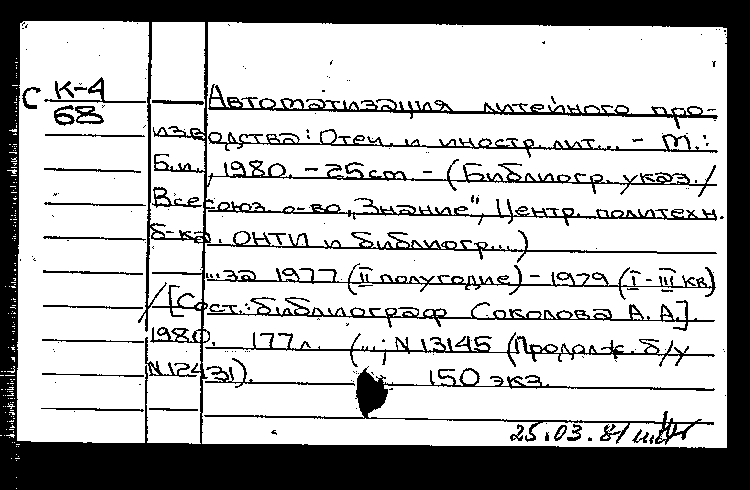 С К-4
68
Автоматизация литейного про-
изводства: Отеч. и иностр. лит... - М.:
Б.и., 1980. - 25 cm - (Библиогр. указ. /
Всесоюз. о-во „Знание", Центр. политехн.
б-ка. ОНТИ и библиогр...)
...за 1977 (II полугодие) - 1979 (I - III кв)
/[Сост.: библиограф Соколова А. А.].
1980. 177 л. (...; N 13145 (Продолж. б/у
N 12431). 150 экз.
25.03.81